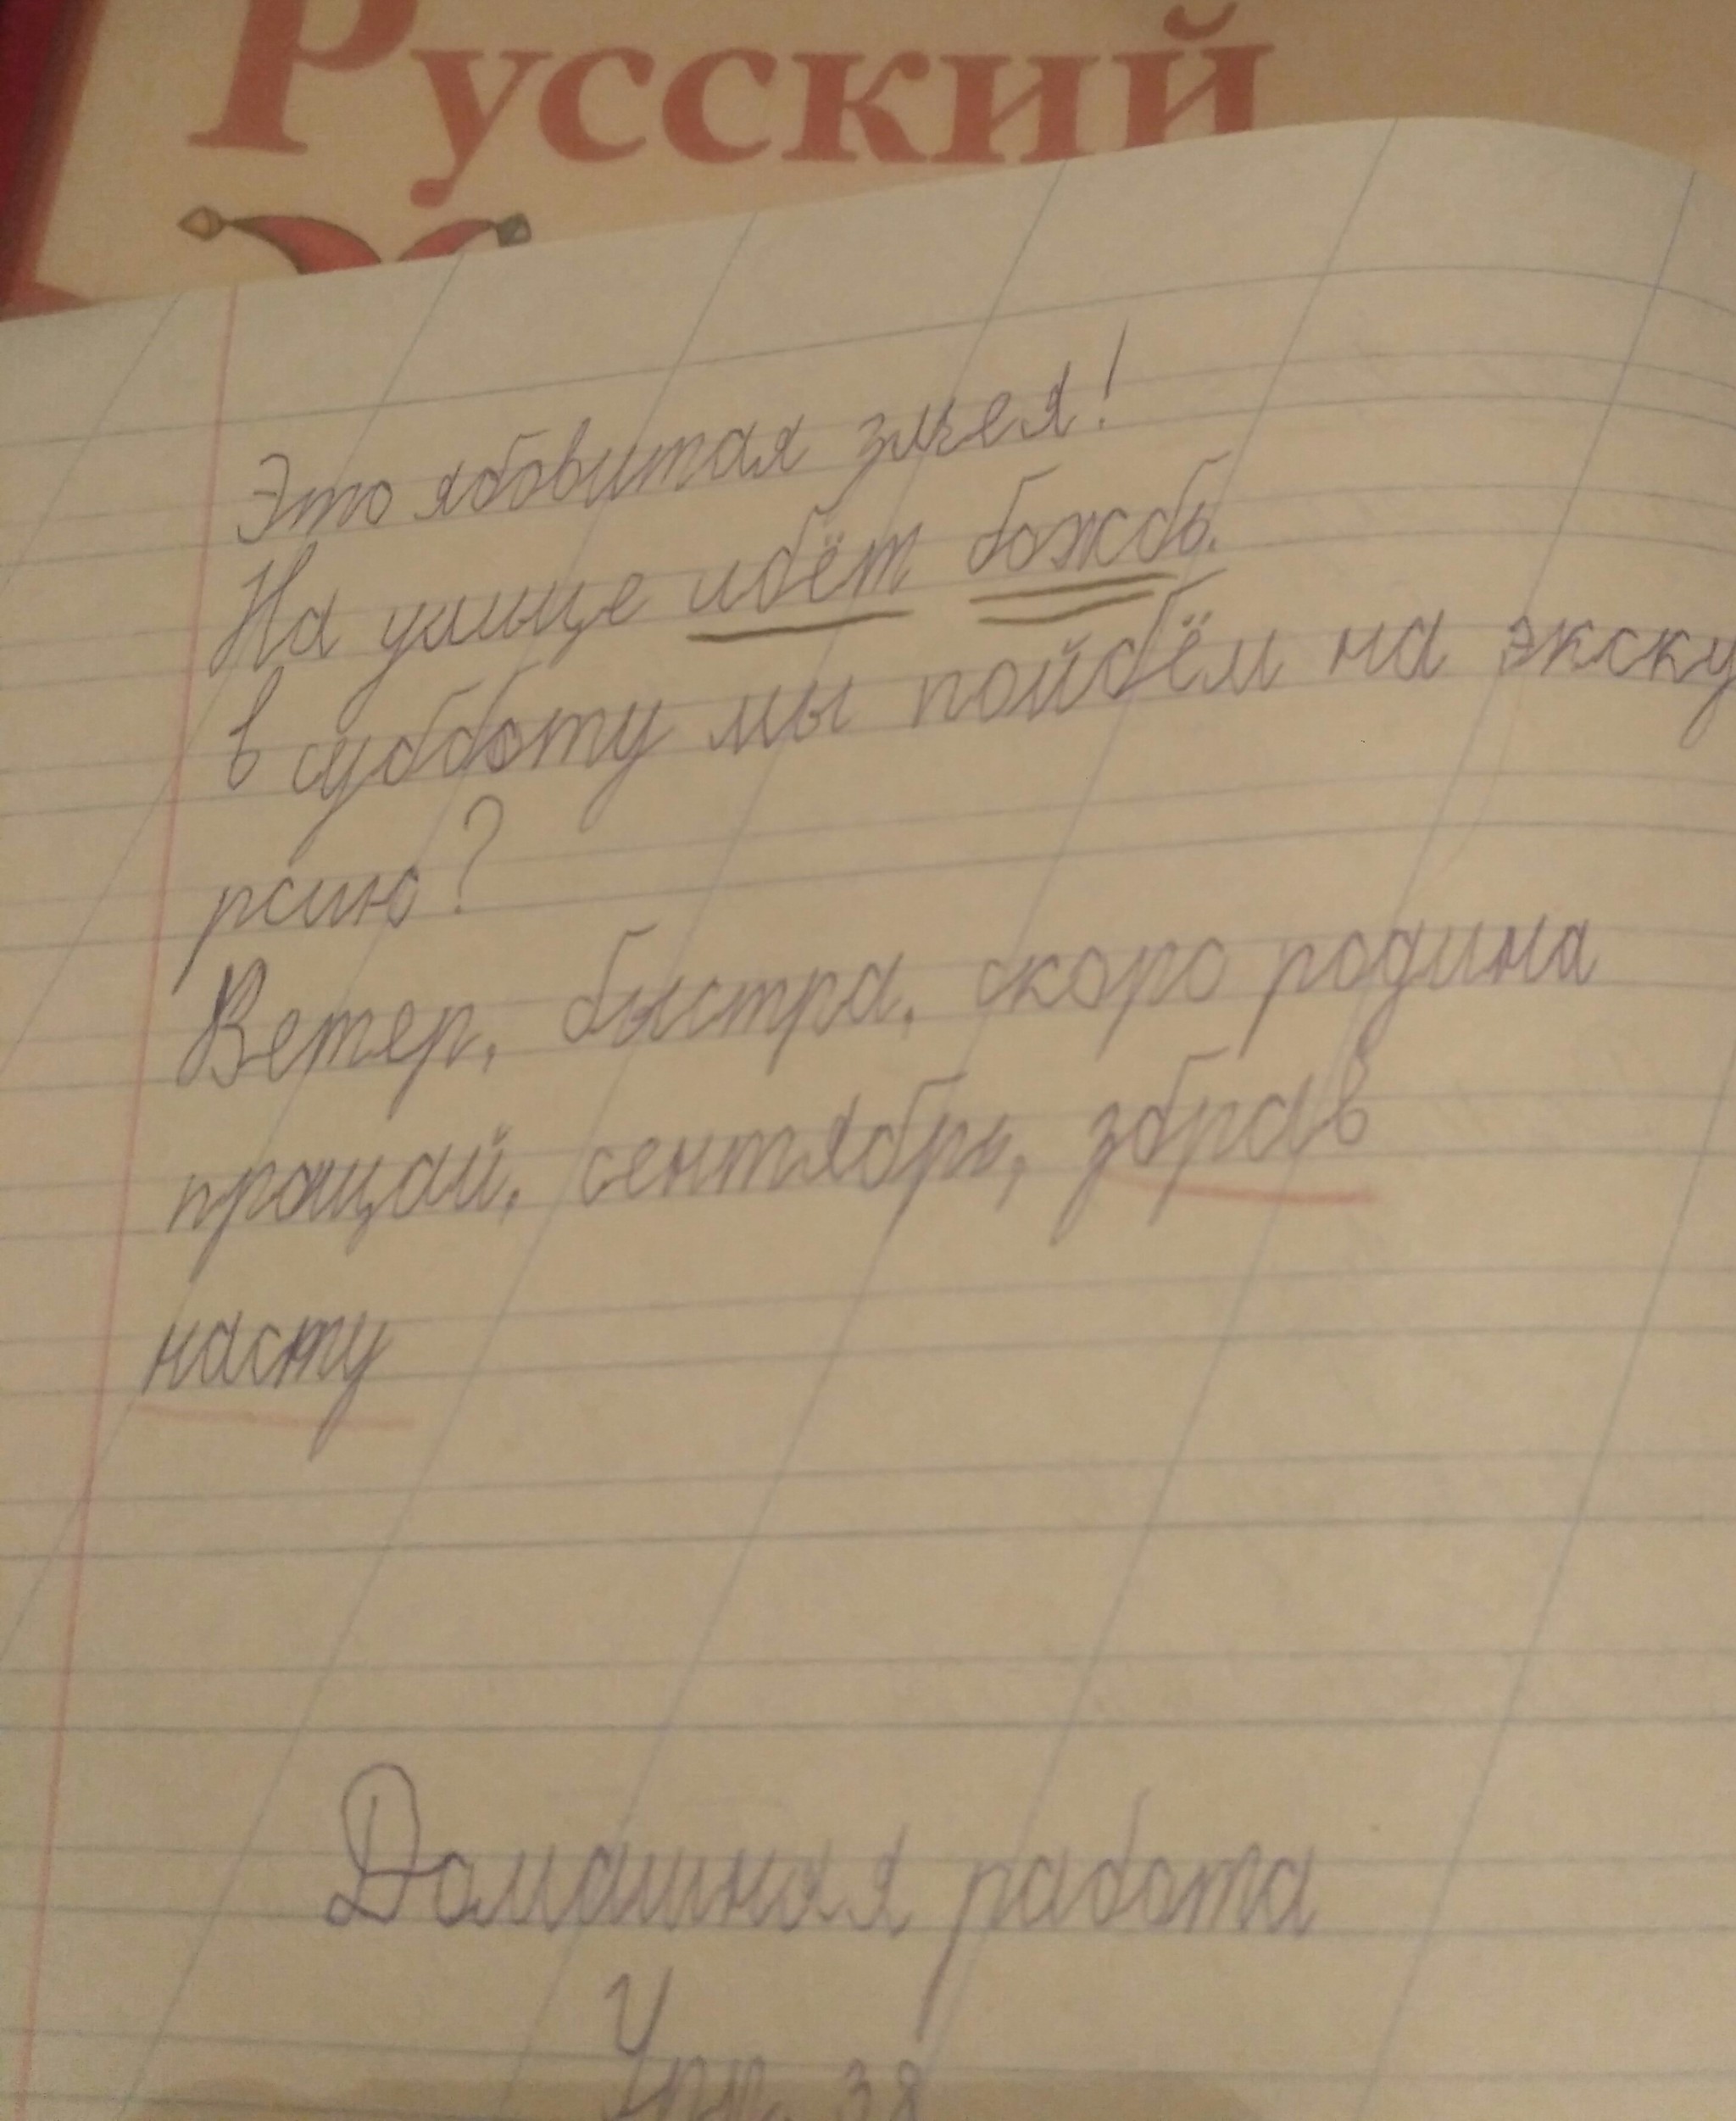 Русский
Это ядовитая змея!
На улице идёт дождь.
в субботу мы пойдём на экску
рсию?
Ветер, быстра, скоро родина
прощай, сентябрь, збрав
насту
Домашная работа
Упр. 38